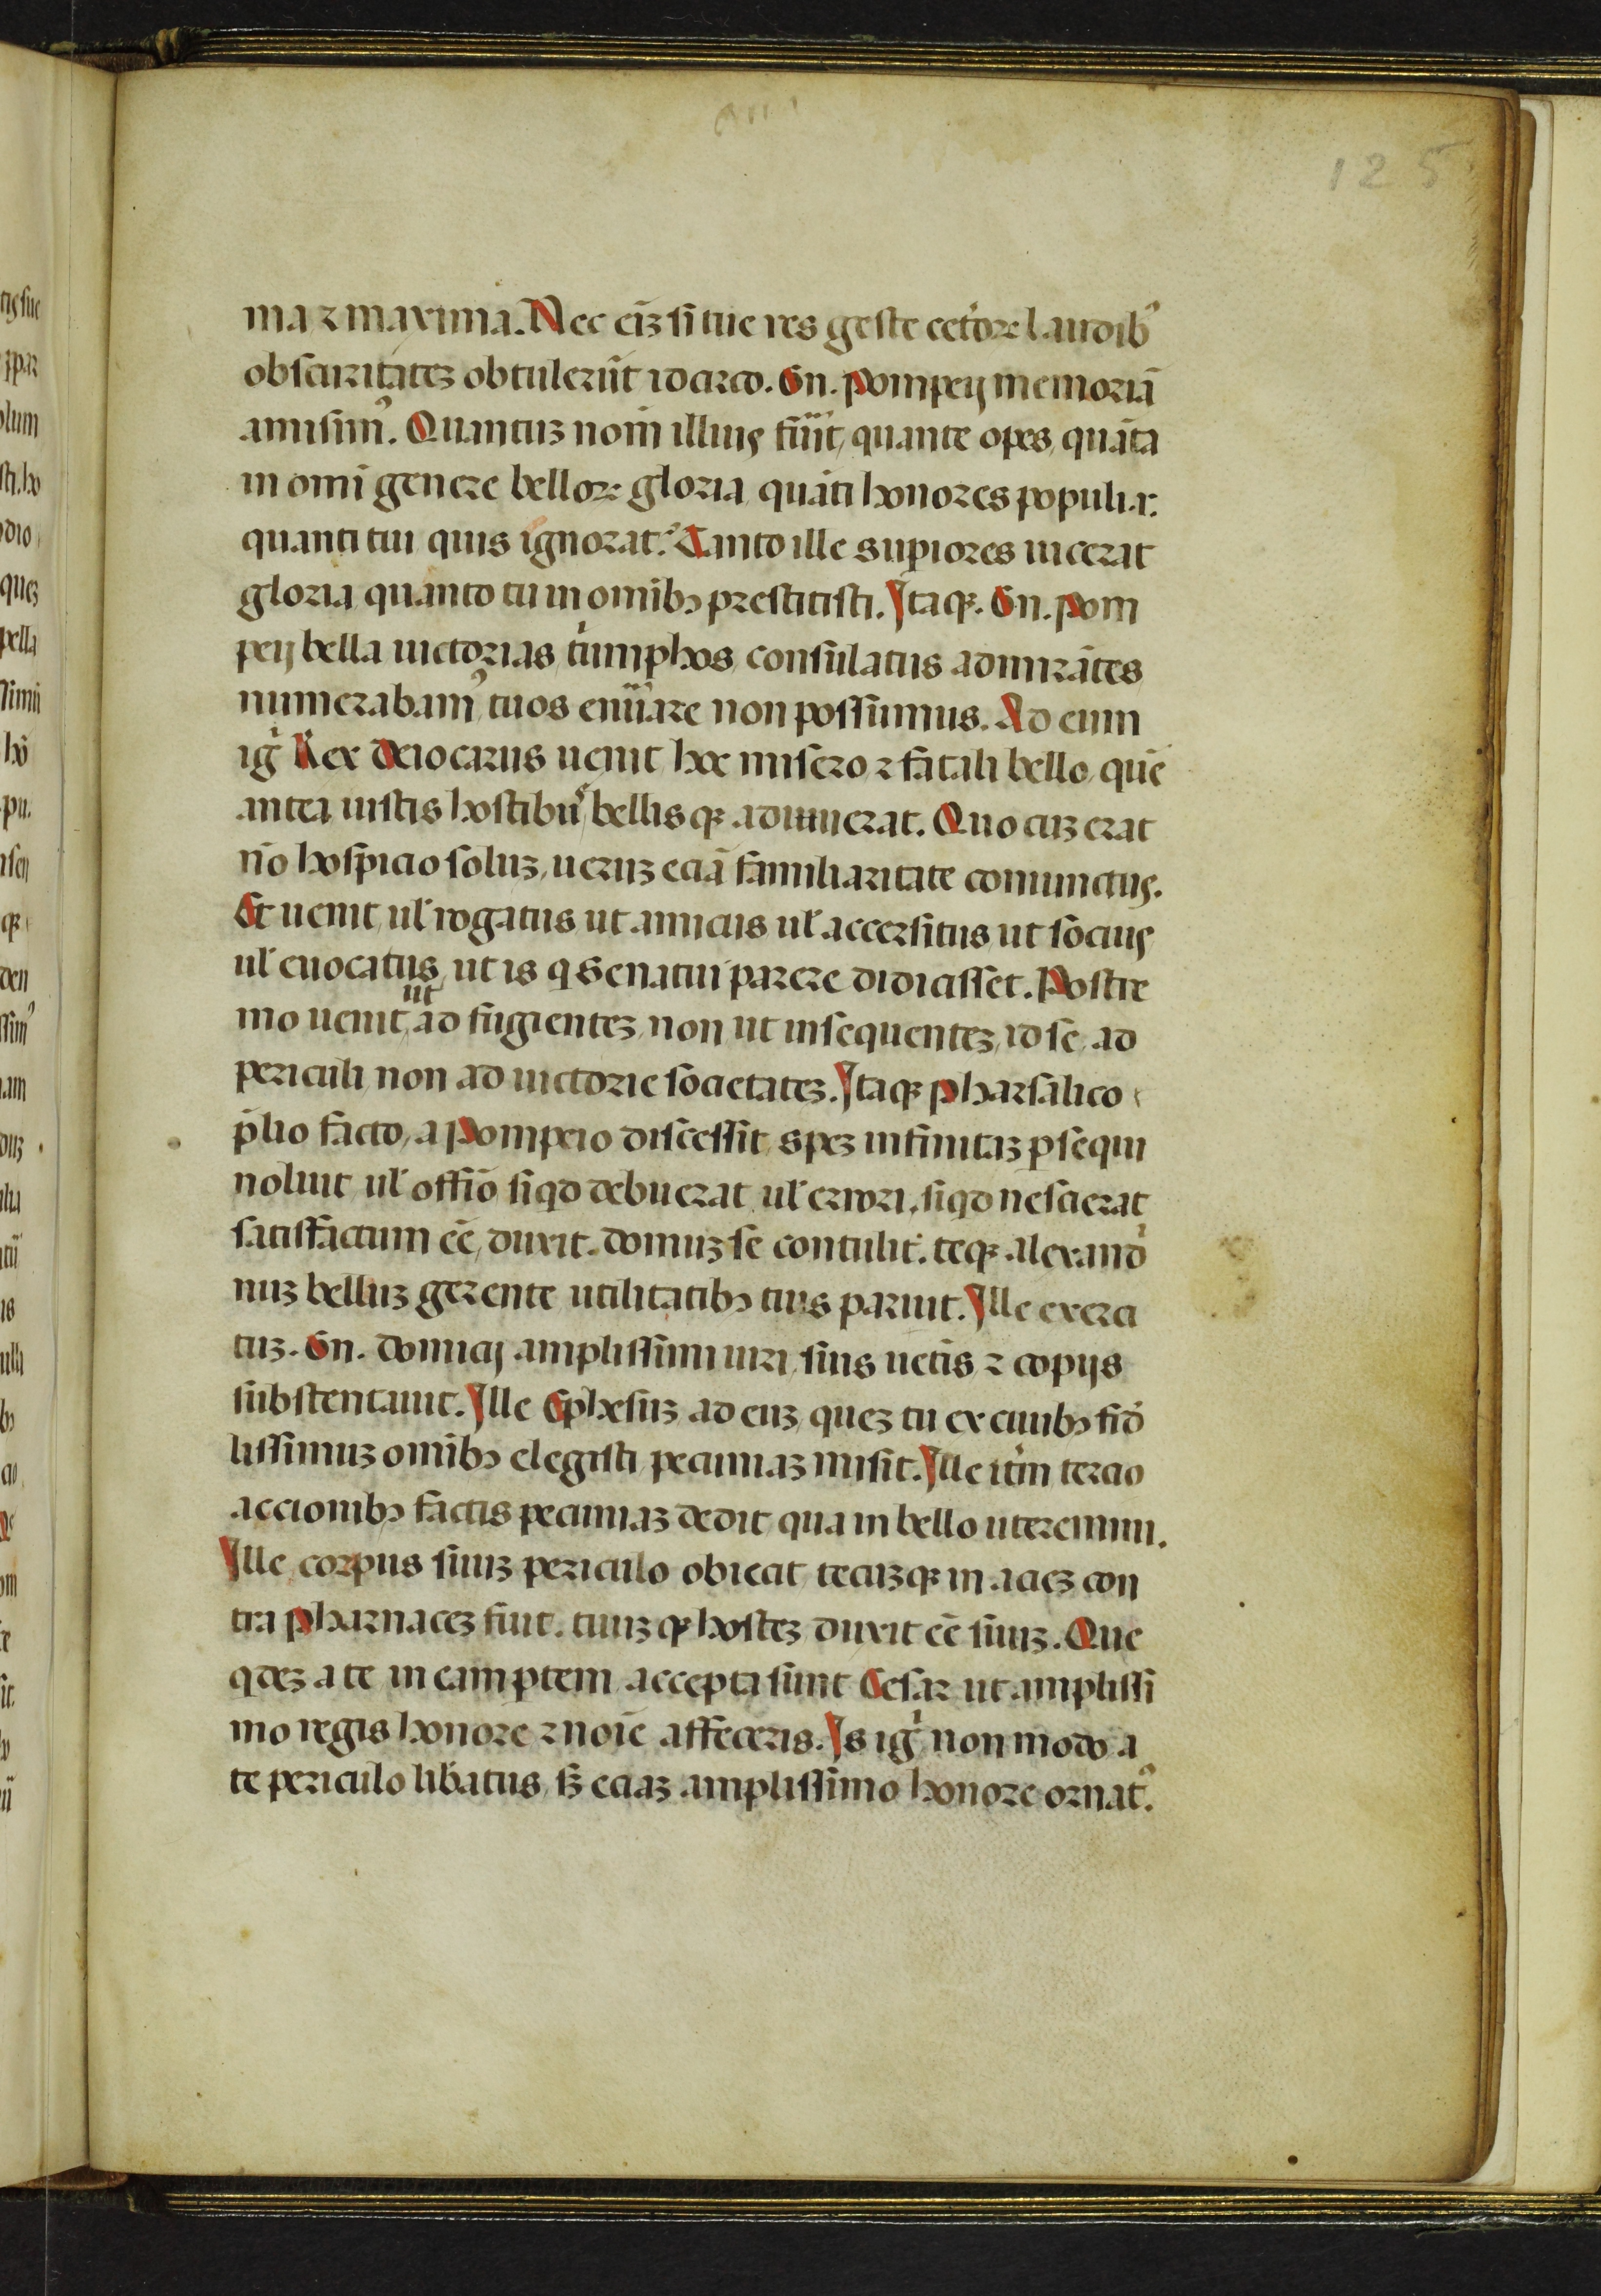 125
ma ⁊ maxima. Nec eiꝫ si tue res geste ceto᷑ꝝ laudibꝰ
obscuritateꝫ obtulerūt idcirco. Gn. Pompeij memoriā
amisimꝰ. Quantuꝫ nom̄ illius fu͛it, quante opes, quāta
in omī genere belloꝝ gloria, quāti honores populi .r.
quanti tui quis ignorat? Tanto ille supiores uicerat
gloria quanto tu in omībꝫ prestitisti. Itaqꝫ. Gn. Pom
peij bella uictorias, tⁱumphos, consulatus admirātes
numerabamꝰ, tuos enūare non possumus. Ad eum
igᷣ Rex Deiotarus uenit, hoc misero ⁊ fatali bello, quē
antea iustis hostibus, bellis qꝫ adiuuerat. Quo cuꝫ erat
nō hospicio soluꝫ, ueruꝫ eciā familiaritate coniunctus.
Et uenit, ul̓ rogatus, ut amicus ul̓ accersitus, ut socius
ul̓ euocatus, ut is q Senatui parere didicisset. Postre
mo uenit, ut ad fugienteꝫ, non ut insequenteꝫ, id se, ad
periculi, non ad uictorie societateꝫ. Itaqꝫ Pharsalico
p̄lio facto, a Pompeio discessit, speꝫ infinitaꝫ ꝑsequi
noluit, ul̓ offīo siqd debuerat, ul̓ errori, siqd nescierat
satisfactum eē, duxit. domuꝫ se contulit. teqꝫ. alexandⁱ
nuꝫ belluꝫ gerente utilitatibꝫ tuis paruit. Ille exerci
tuꝫ. Gn. domicij amplissimi uiri, suis uect̄is ⁊ copijs
substentauit. Ille Ephesuꝫ ad euꝫ, queꝫ tu ex ciuibꝫ fid̓
lissimuꝫ omībꝫ elegisti, pecuniaꝫ misit. Ille itm̄ tercio
accionibꝫ factis pecuniaꝫ dedit, qua in bello uteremini.
Ille corpus suuꝫ periculo obiecit, tecuꝫqꝫ in acieꝫ con
tra Pharnaceꝫ fuit. tuuꝫ qꝫ hosteꝫ duxit eē suuꝫ. Que
qdeꝫ a te in eam ꝑtem accepta sunt Cesar ut amplissi
mo regis honore ⁊ noīe affeceris. Is igᷣ non modo a
te periculo lib̓atus, sꝫ eciaꝫ amplissimo honore ornatꝰ.